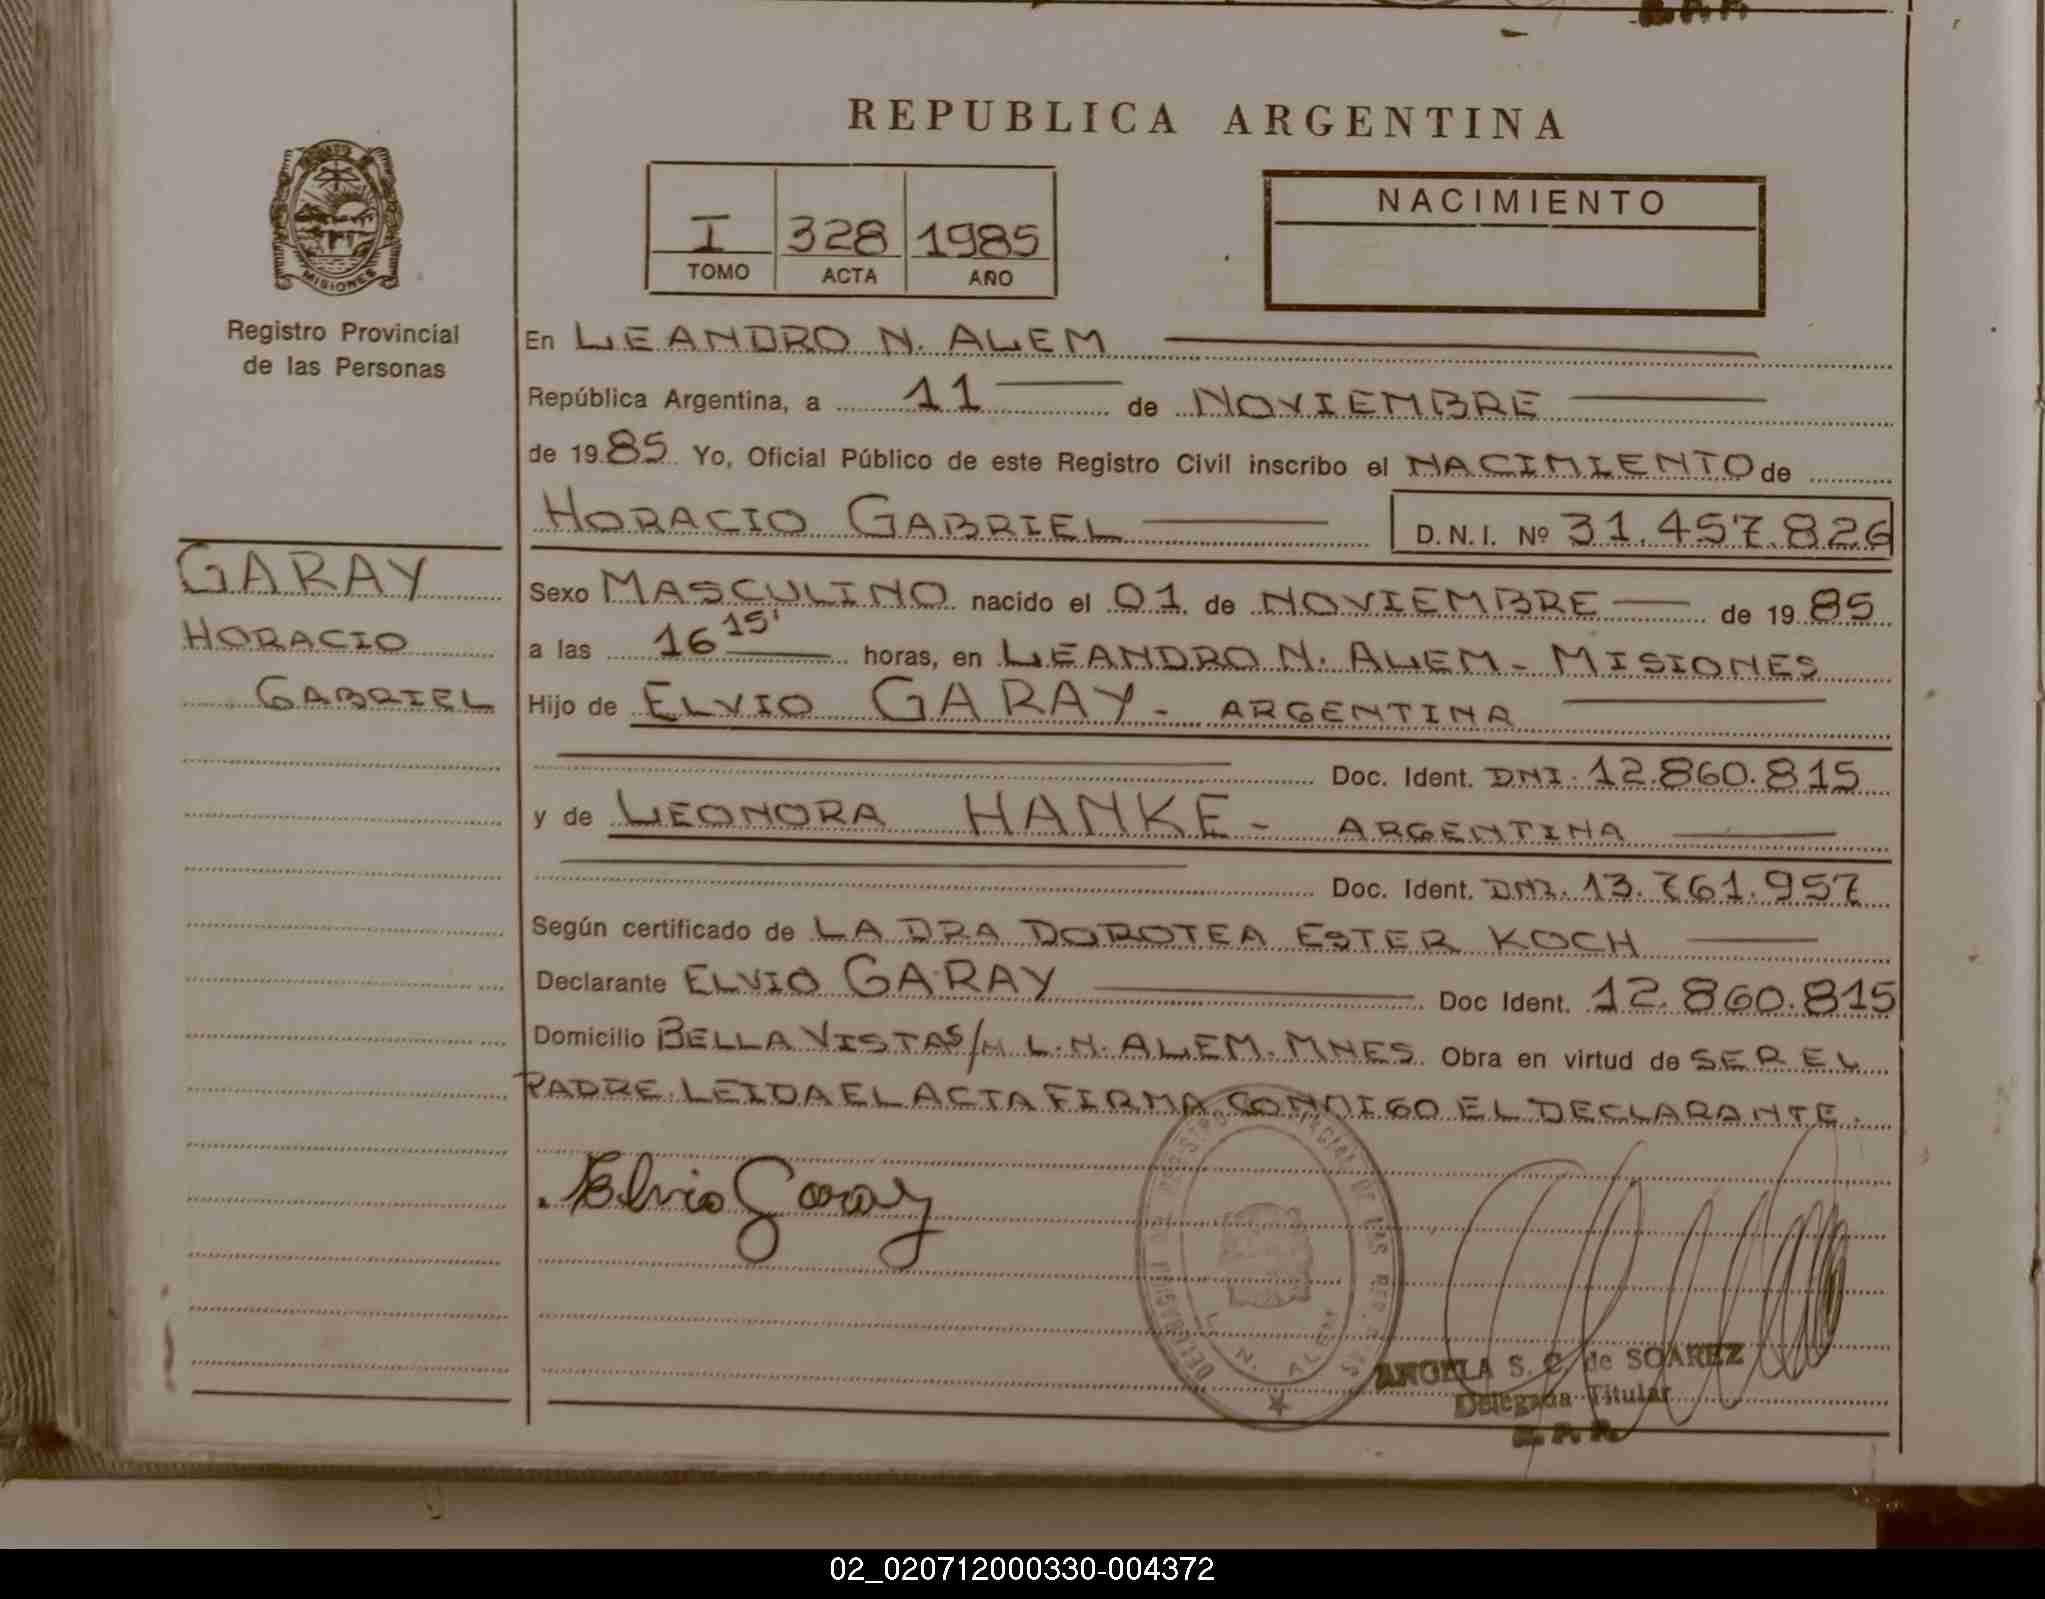 REPUBLICA ARGENTINA
MISIONES
Registro Provincial
de las Personas
I 328 1985
TOMO ACTA AÑO
NACIMIENTO
En LEANDRO N. ALEM
República Argentina, a 11 de NOVIEMBRE
de 1985 Yo, Oficial Público de este Registro Civil inscribo el NACIMIENTO de
HORACIO GABRIEL D.N.I. Nº 31.457.826
GARAY
HORACIO
GABRIEL
Sexo MASCULINO nacido el 01 de NOVIEMBRE de 1985
a las 16 15' horas, en LEANDRO N. ALEM - MISIONES
Hijo de ELVIO GARAY - ARGENTINA
Doc. Ident. DNI. 12.860.815
y de LEONORA HANKE - ARGENTINA
Doc. Ident. DNI. 13.761.957
Según certificado de LA DRA DOROTEA ESTER KOCH
Declarante ELVIO GARAY Doc Ident. 12.860.815
Domicilio BELLA VISTA S/N L.N. ALEM. MNES. Obra en virtud de SER EL
PADRE. LEIDA EL ACTA FIRMA CONMIGO EL DECLARANTE.
Elvio Garay
L. N. ALEM
ANGELA S. C. de SOAREZ
Delegada Titular
R. P. P.
02_020712000330-004372